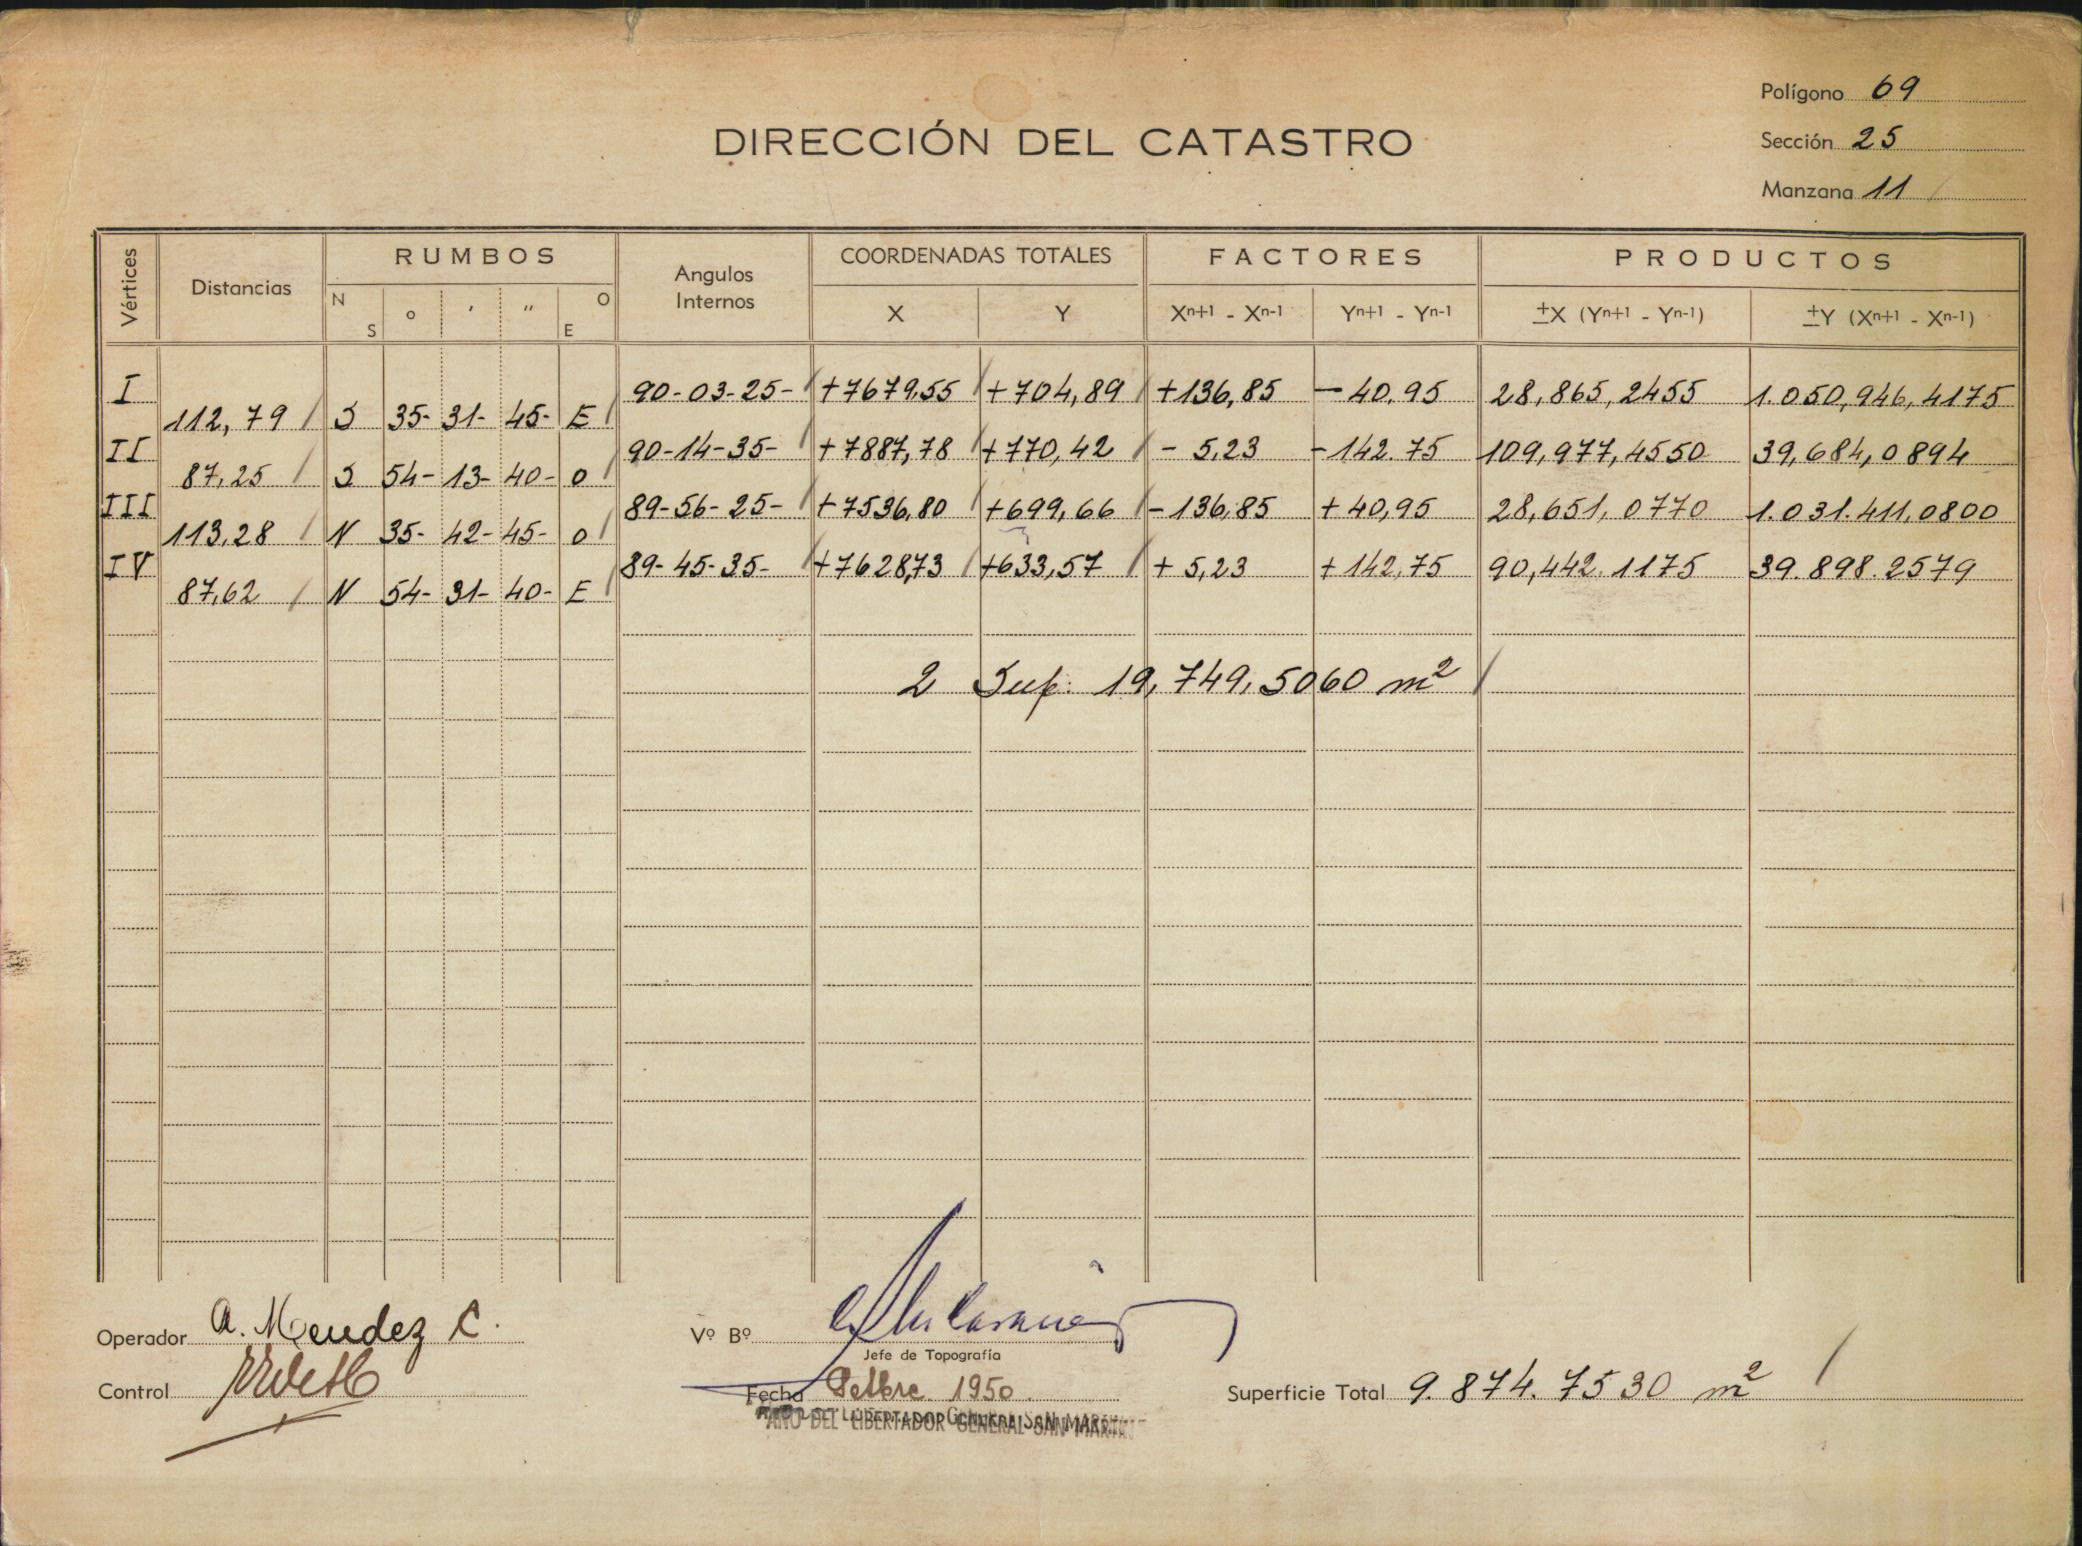 Polígono 69
DIRECCIÓN DEL CATASTRO
Sección 25
Manzana 11
Vértices Distancias RUMBOS N S o ' " O E Angulos Internos COORDENADAS TOTALES X Y FACTORES Xn+1 - Xn-1 Yn+1 - Yn-1 PRODUCTOS ±X (Yn+1 - Yn-1) ±Y (Xn+1 - Xn-1)
I 90-03-25- +7679,55 +704,89 +136,85 -40,95 28,865,2455 1.050,946,4175
112,79 S 35- 31- 45- E
II 90-14-35- +7887,78 +770,42 - 5,23 -142.75 109,977,4550 39,684,0894
87,25 S 54- 13- 40- O
III 89-56-25- +7536,80 +699,66 -136,85 +40,95 28,651,0770 1.031.411,0800
113,28 N 35- 42- 45- O
IV 89-45-35- +7628,73 +633,57 + 5,23 +142,75 90,442.1175 39.898.2579
87,62 N 54- 31- 40- E
2 Sup. 19,749,5060 m²
Operador A. Mendez C.
Vº Bº
Jefe de Topografía
Control
Fecha Setbre 1950.
Superficie Total 9.874.7530 m²
AÑO DEL LIBERTADOR GENERAL SAN MARTIN